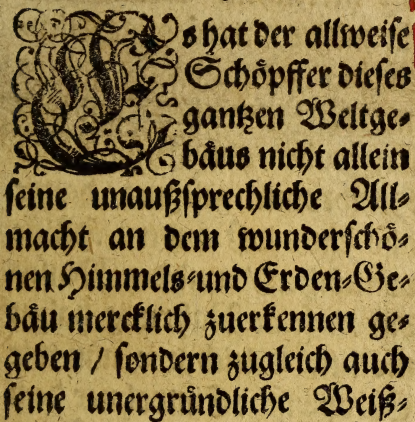 Es hat der allweise
Schöpffer dieses
gantzen Weltge⸗
bäus nicht allein
seine unaußsprechliche All⸗
macht an dem wunderschö⸗
nen Himmels⸗und Erden⸗Ge⸗
bäu mercklich zuerkennen ge⸗
geben / sondern zugleich auch
seine unergründliche Weiß⸗